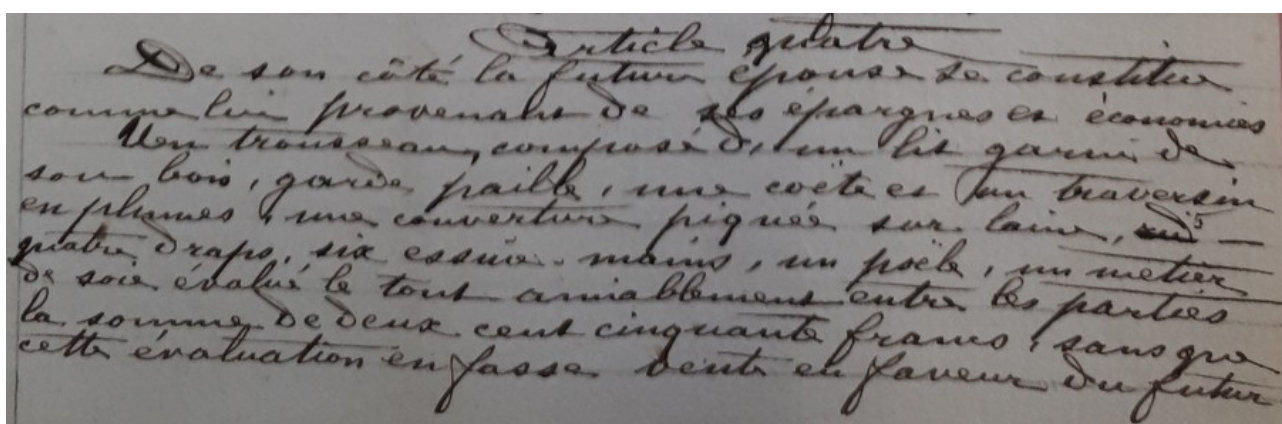 Article quatre
De son côté la future épouse se constitue
comme lui provenant de ses épargnes et économies
Un trousseau, composé d'un lit garni de
son bois, garde paille, une coëte et un traversin
en plumes, une couverture piquée sur laine,
quatre draps, six essuie-mains, un poële, un metier
de soie évalué le tout amiablement entre les parties
la somme de deux cent cinquante francs, sans que
cette évaluation en fasse vente en faveur du futur